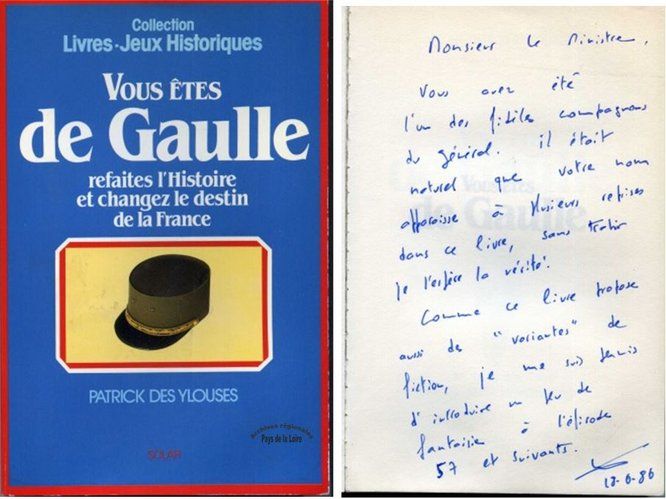 Collection
Livres-Jeux Historiques
VOUS ÊTES
de Gaulle
refaites l'Histoire
et changez le destin
de la France
PATRICK DES YLOUSES
Archives régionales
Pays de la Loire
SOLAR
Monsieur le Ministre,
Vous avez été
l'un des fidèles compagnons
du général. il était
naturel que votre nom
apparaisse à plusieurs reprises
dans ce livre, sans trahir
je l'espère la vérité.
Comme ce livre propose
aussi des "variantes" de
fiction, je me suis permis
d'introduire un peu de
fantaisie à l'épisode
57 et suivants.
18-6-86